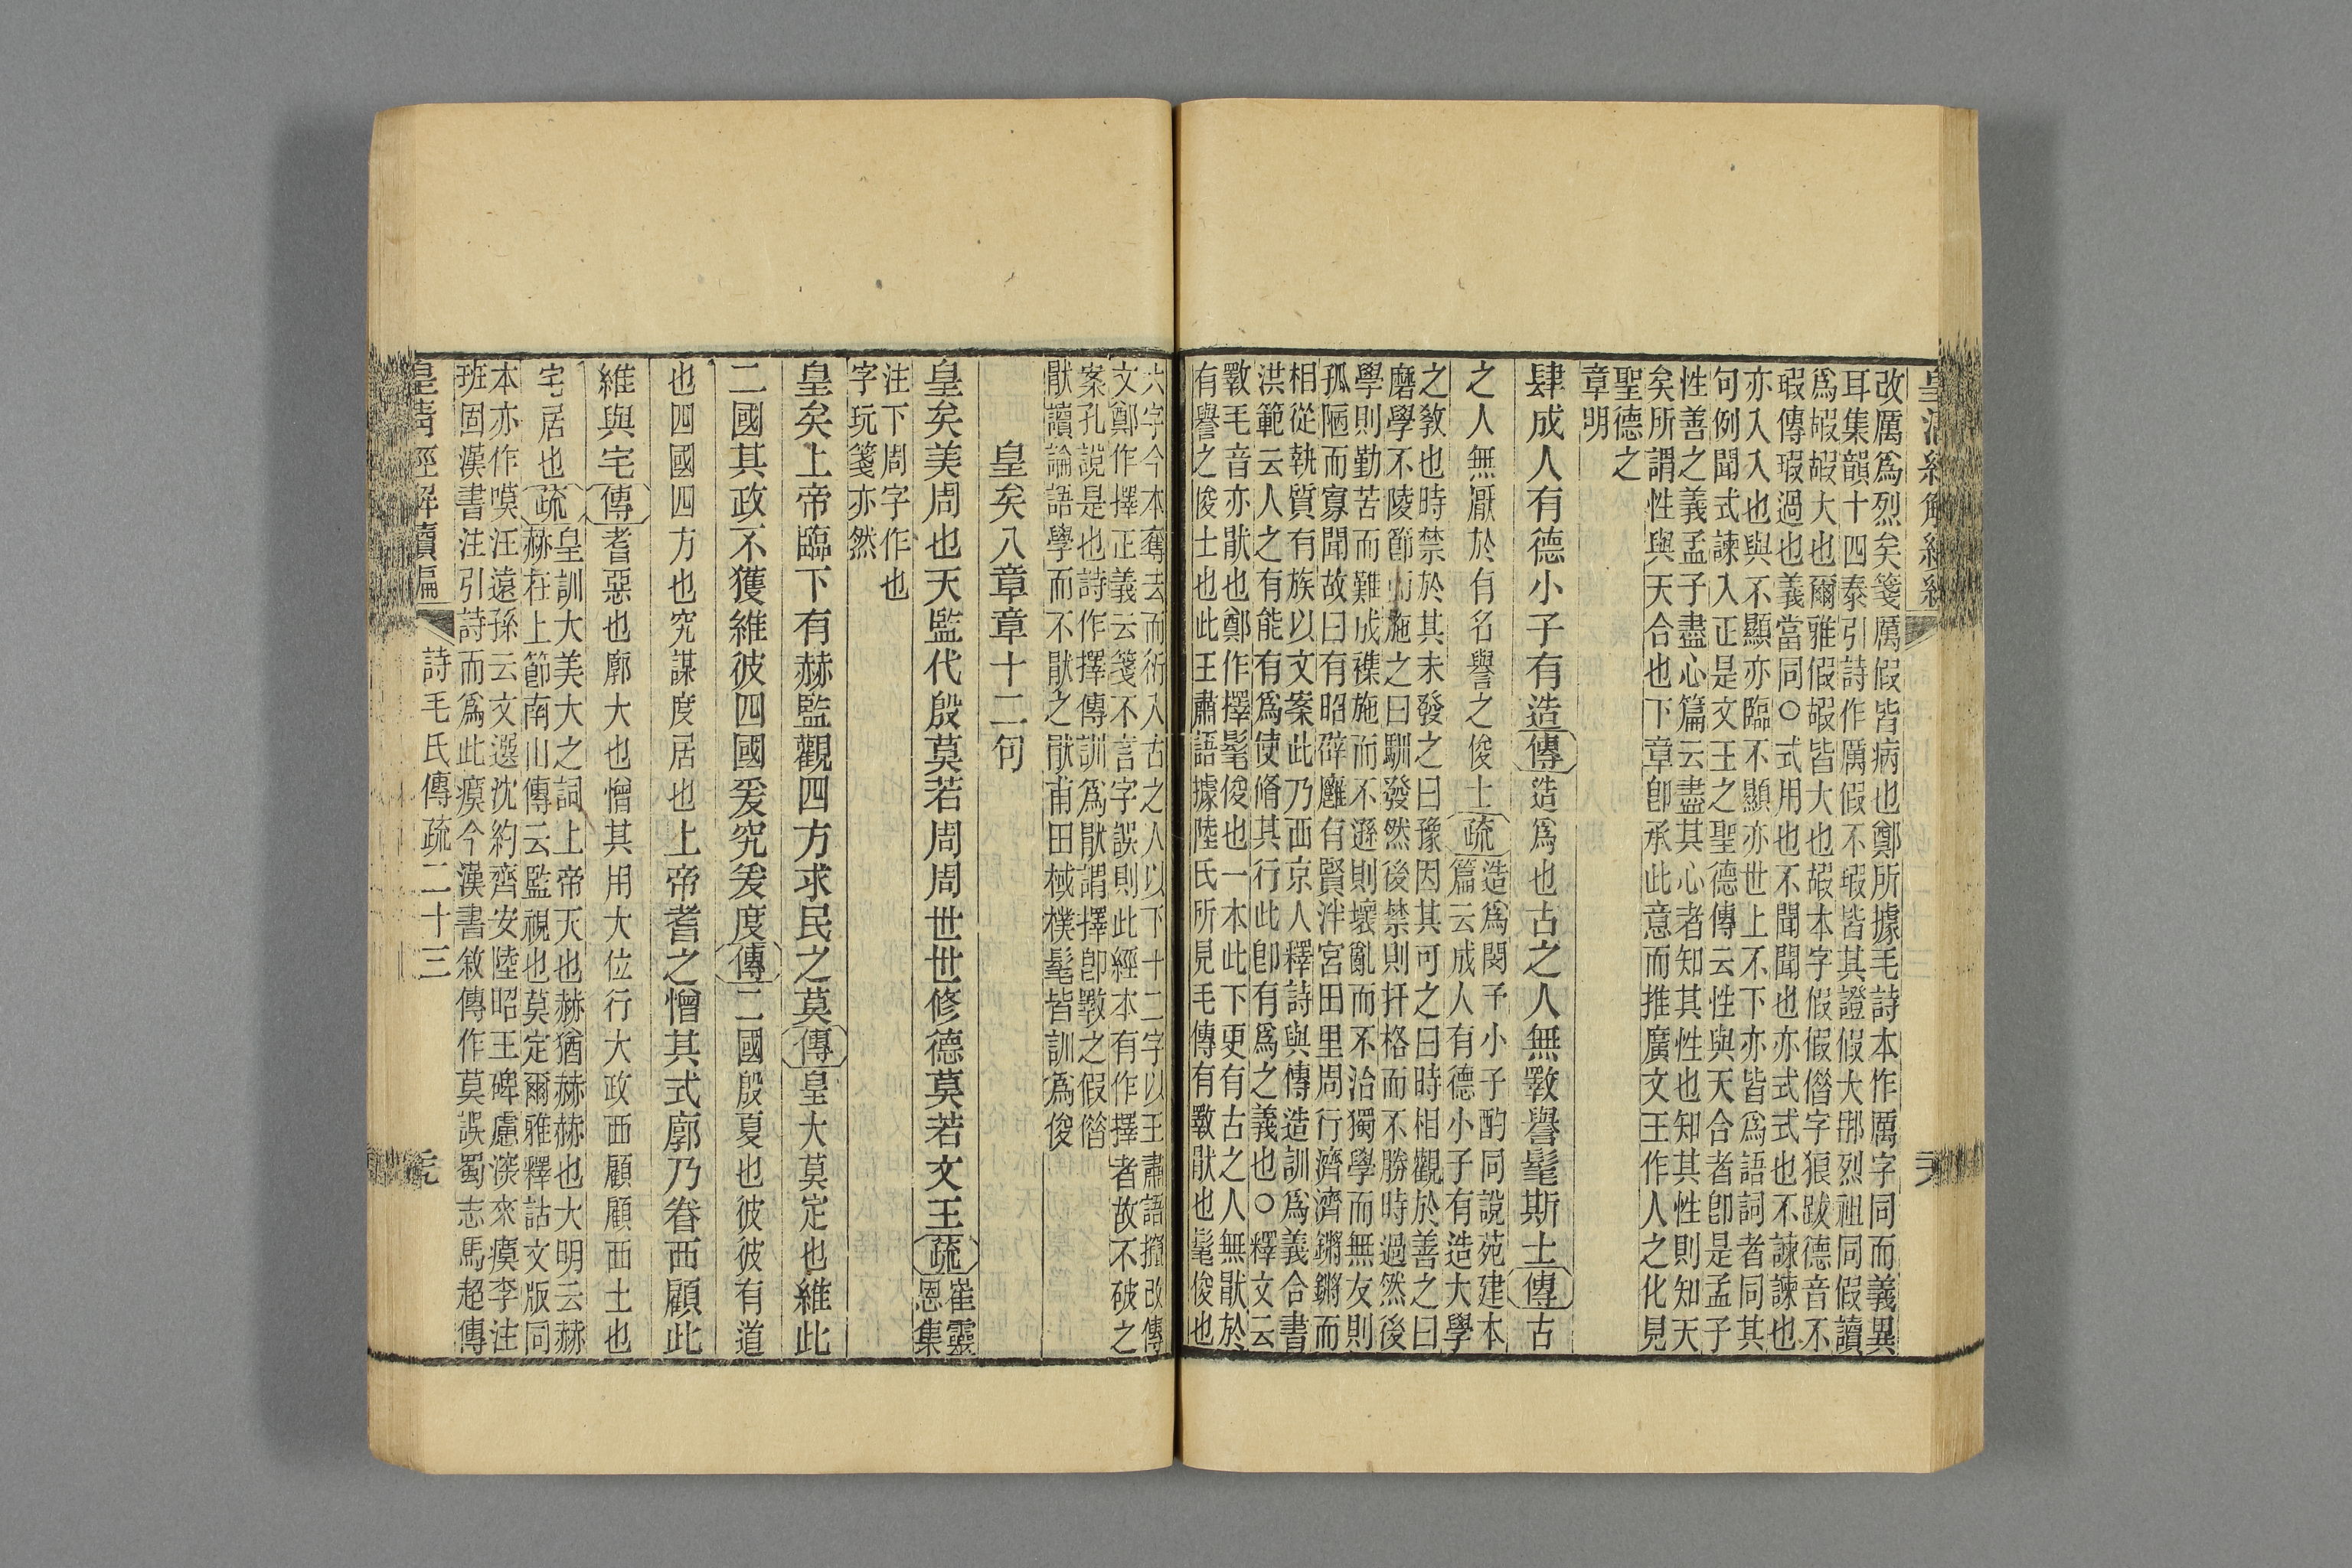 改厲爲烈矣箋厲假皆病也鄭所據毛詩本作厲字同而義異
耳集韻十四泰引詩作厲假不瑕皆其證假大那烈祖同假讀
爲嘏嘏大也爾雅假嘏皆大也嘏本字假假僭字狼跋德音不
瑕傳瑕過也義當同○式用也不聞聞也亦式式也不諫諫也
亦入入也與不顯亦臨不顯亦世上不下亦亦皆爲語詞者同其
句例聞式諫入正是文王之聖德傳云性與天合者卽是孟子
性善之義孟子盡心篇云盡其心者知其性也知其性則知天
矣所謂性與天合也下章卽承此意而推廣文王作人之化見
聖德之
章明
肆成人有德小子有造傳造爲也古之人無斁譽髦斯士傳古
之人無厭於有名譽之俊士疏
造爲閔予小子酌同說苑建本
篇云成人有德小子有造大學
之敎也時禁於其未發之曰豫因其可之曰時相觀於善之曰
磨學不陵節而施之曰馴發然後禁則扞格而不勝時過然後
學則勤苦而難成襍施而不遜則壞亂而不治獨學而無友則
孤陋而寡聞故曰有昭辟廱有賢泮宮田里周行濟濟鏘鏘而
相從執質有族以文案此乃西京人釋詩與傳造訓爲義合書
洪範云人之有能有爲使脩其行此卽有爲之義也○釋文云
斁毛音亦猒也鄭作擇髦俊也一本此下更有古之人無猒於
有譽之俊士也此王肅語據陸氏所見毛傳有斁猒也髦俊也
六字今本奪去而衍入古之人以下十二字以王肅語攛改傳
文鄭作擇正義云箋不言字誤則此經本有作擇者故不破之
案孔說是也詩作擇傳訓爲猒謂擇卽斁之假僭
猒讀論語學而不猒之猒甫田棫樸髦皆訓爲俊
皇矣八章章十二句
皇矣美周也天監代殷莫若周周世世修德莫若文王疏
崔靈
恩集
注下周字作也
字玩箋亦然
皇矣上帝臨下有赫監觀四方求民之莫傳皇大莫定也維此
二國其政不獲維彼四國爰究爰度傳二國殷夏也彼彼有道
也四國四方也究謀度居也上帝耆之憎其式廓乃眷西顧此
維與宅傳耆惡也廓大也憎其用大位行大政西顧顧西土也
宅居也疏
皇訓大美大之詞上帝天也赫猶赫赫也大明云赫
赫在上節南山傳云監視也莫定爾雅釋詁文版同
本亦作嗼汪遠孫云文選沈約齊安陸昭王碑慮深來瘼李注
班固漢書注引詩而爲此瘼今漢書敘傳作莫誤蜀志馬超傳
皇清經解續編 詩毛氏傳疏二十三